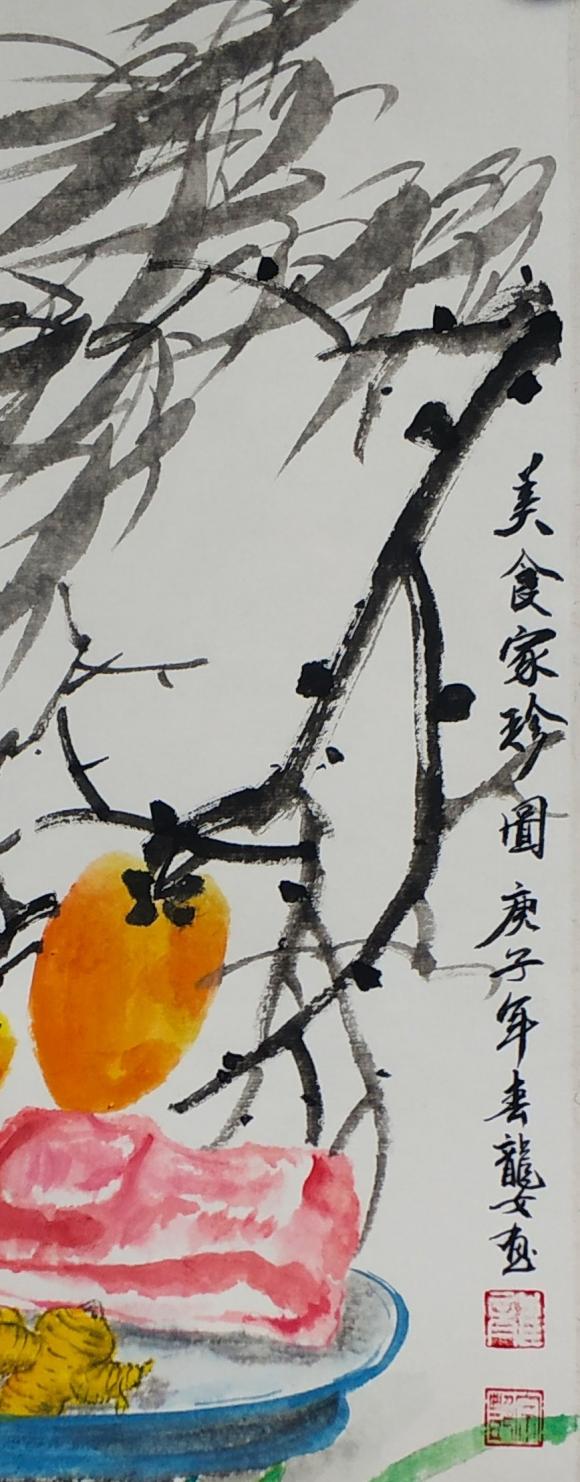 美食家珍圖 庚子年春龍女画